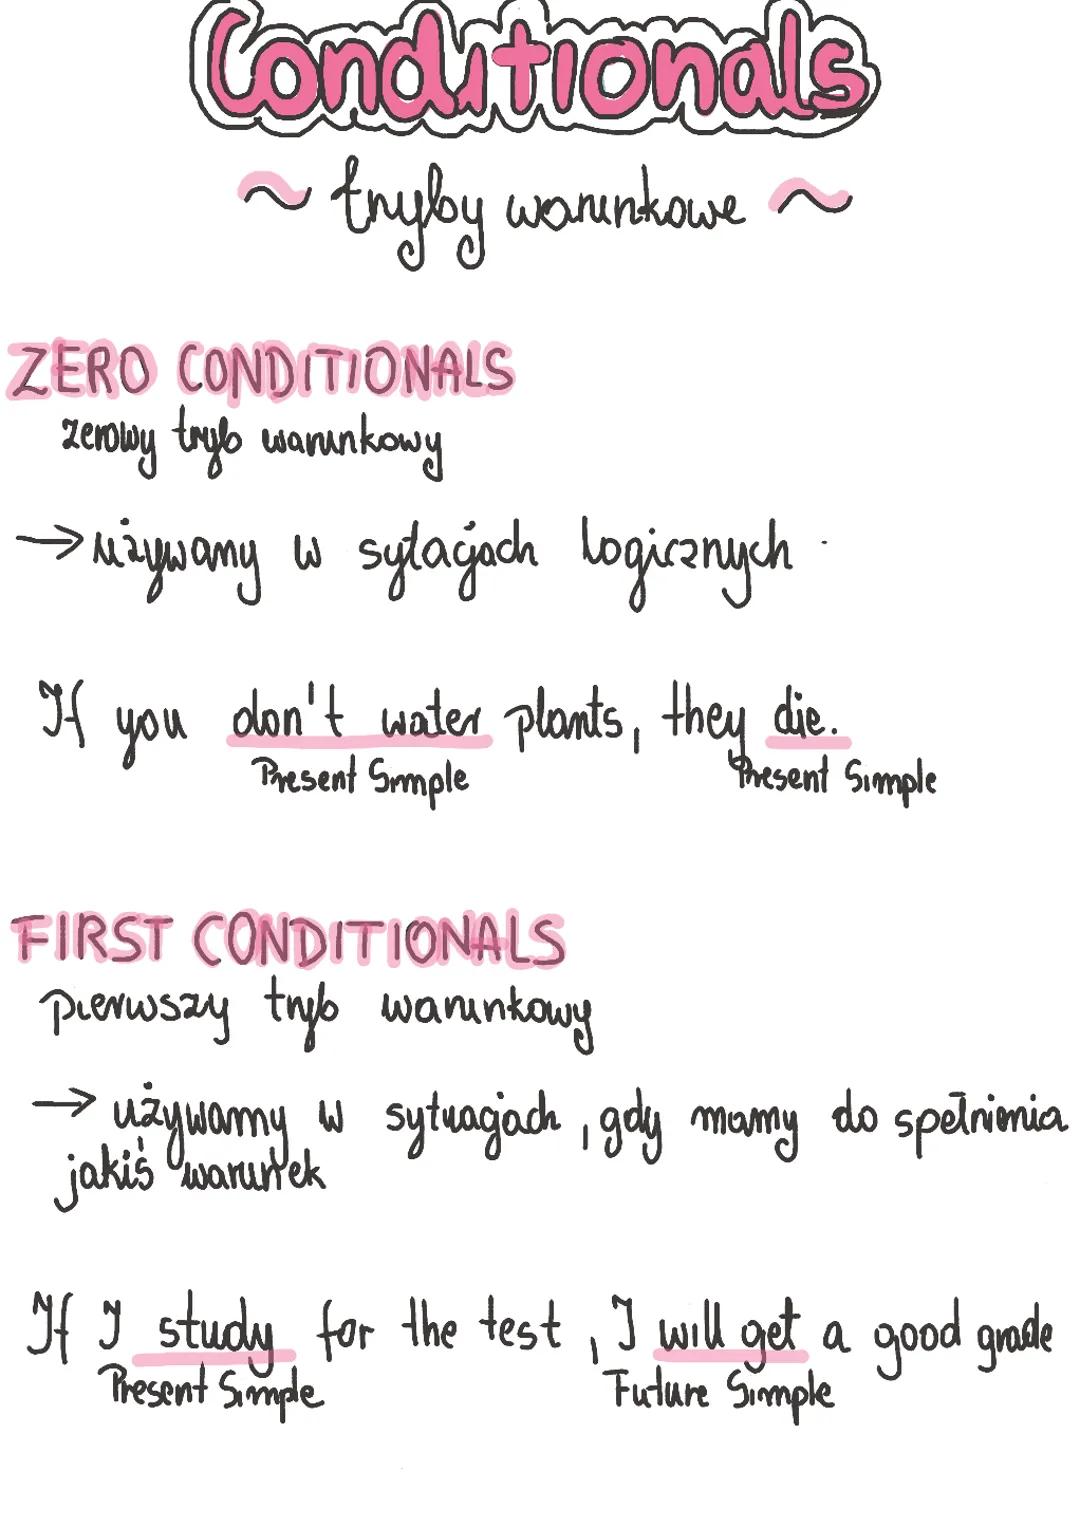 Conditionals
~ tryby warunkowe ~
ZERO CONDITIONALS
zerowy tryb warunkowy
→ używany w sytacjach logicznych
If you don't water plants, they die.
Present Simple Present Simple
FIRST CONDITIONALS
pierwszy tryb warunkowy
→ używamy w sytuacjach, gdy mamy do spełnienia
jakiś warunek
If I study for the test, I will get a good grade
Present Simple Future Simple